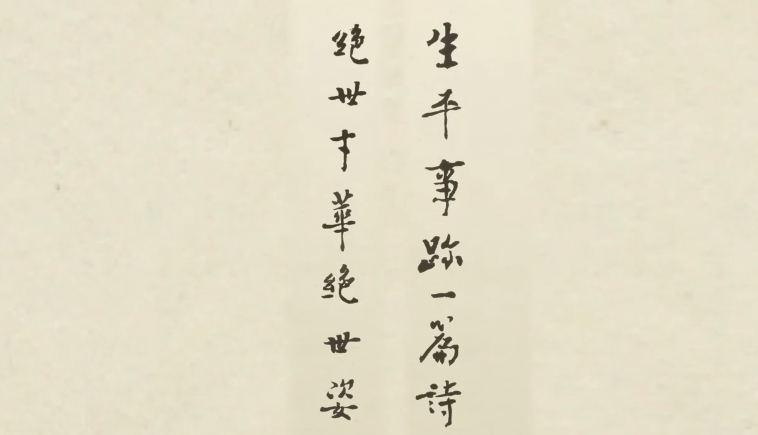 生平事跡一篇詩
絕世才華絕世姿